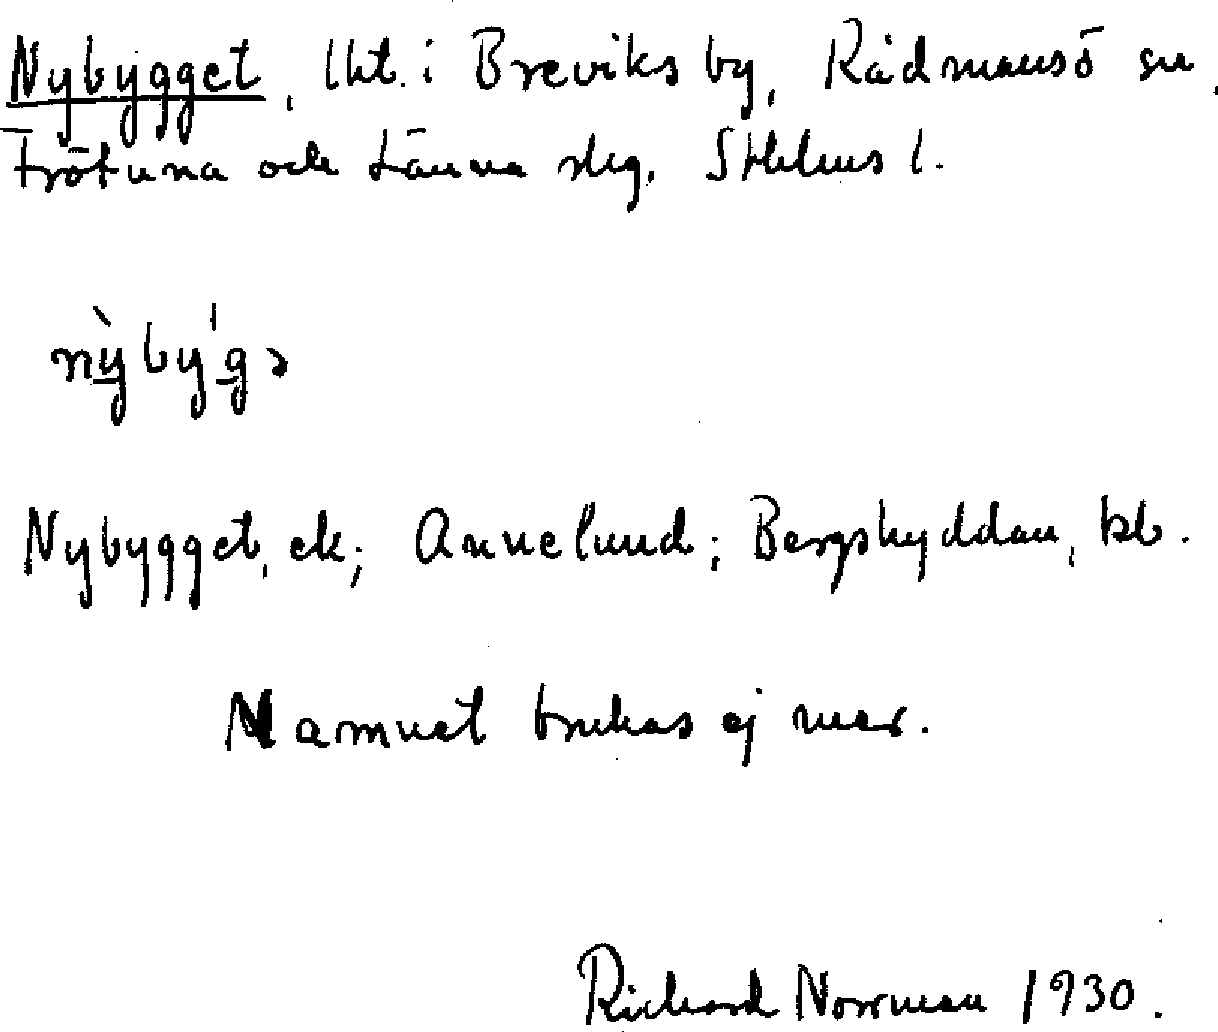 Nybygget, lht. i Breviks by, Rådmansö sn,
Frötuna och Länna slg, Sthlms l.
nỳby'gə
Nybygget, ek; Annelund; Bergshyddan, kb.
Namnet brukas ej mer.
Richard Norrman 1930.